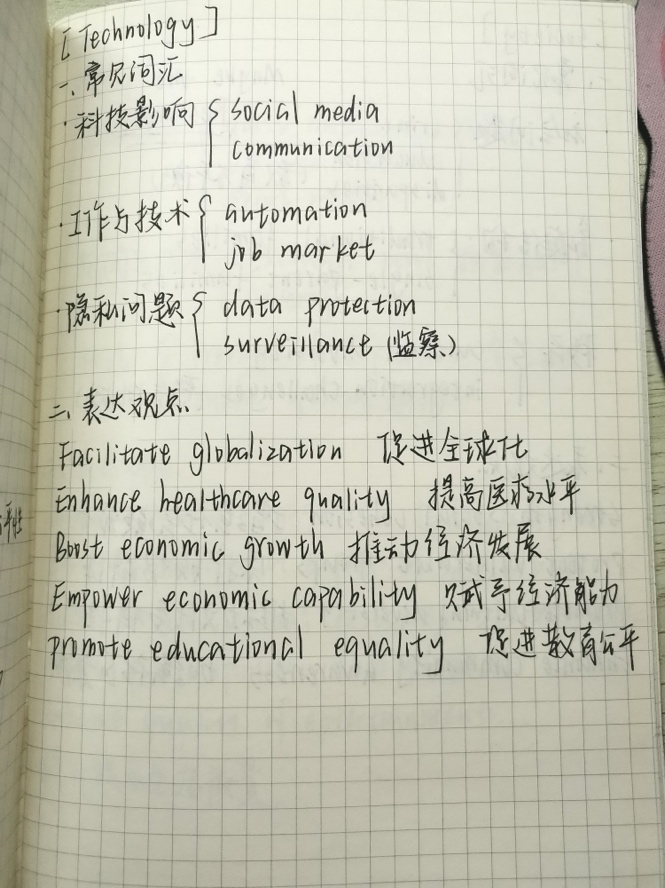 [Technology]
一、常见词汇
·科技影响 { social media
communication
·工作与技术 { automation
job market
·隐私问题 { data protection
surveillance (监察)
二、表达观点
Facilitate globalization 促进全球化
Enhance healthcare quality 提高医疗水平
Boost economic growth 推动经济发展
Empower economic capability 赋予经济能力
promote educational equality 促进教育公平